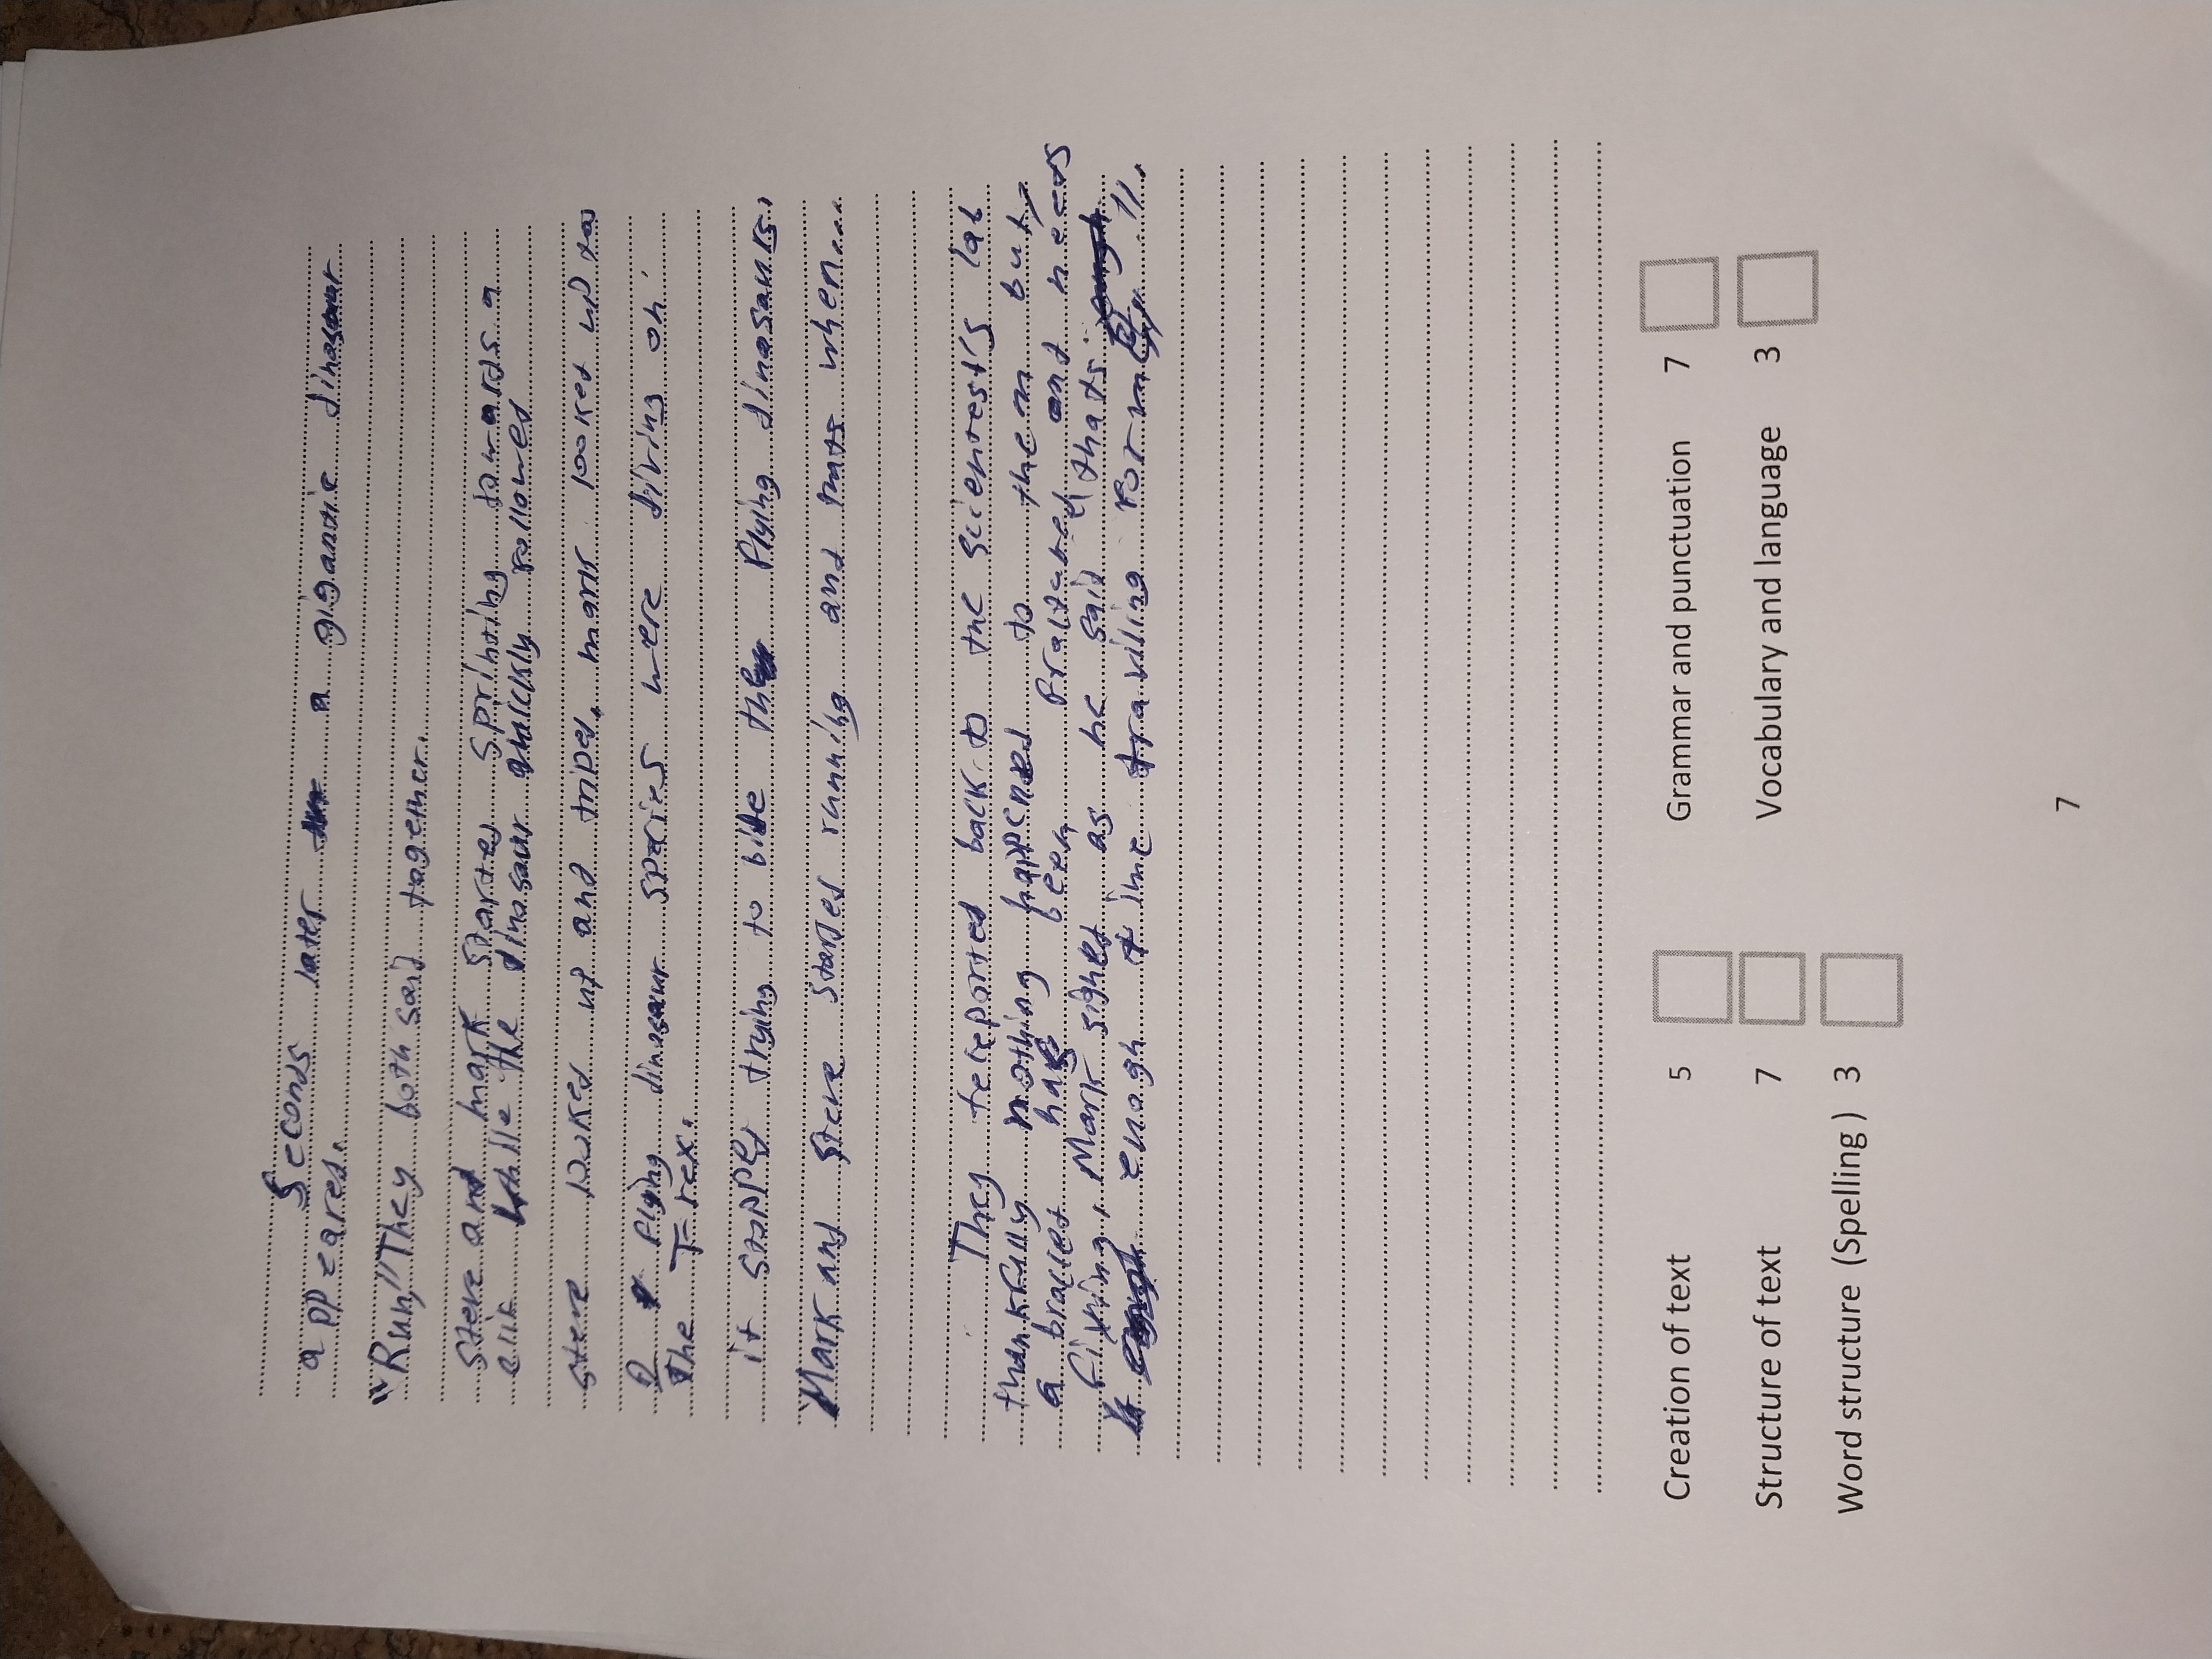 Seconds later a gigantic dinasour
appeared.
"Run!" They both said together.
Steve and mark started sprinting towards a
clif while the dinasour quickly followed
steve looked up and triped. mark looked up too
flying dinasour species were diving on
the T-rex.
it stopped trying to bite the flying dinasaurs.
Mark and steve started running and thats when...
They teleported back to the scientests lab
thankfully nothing happened to them but,
a bracelet has been Praltabed and needs
fixing. Mark sighed as he said "thats
enogh time traviling for me".
Creation of text 5 Grammar and punctuation 7
Structure of text 7 Vocabulary and language 3
Word structure (Spelling ) 3
7